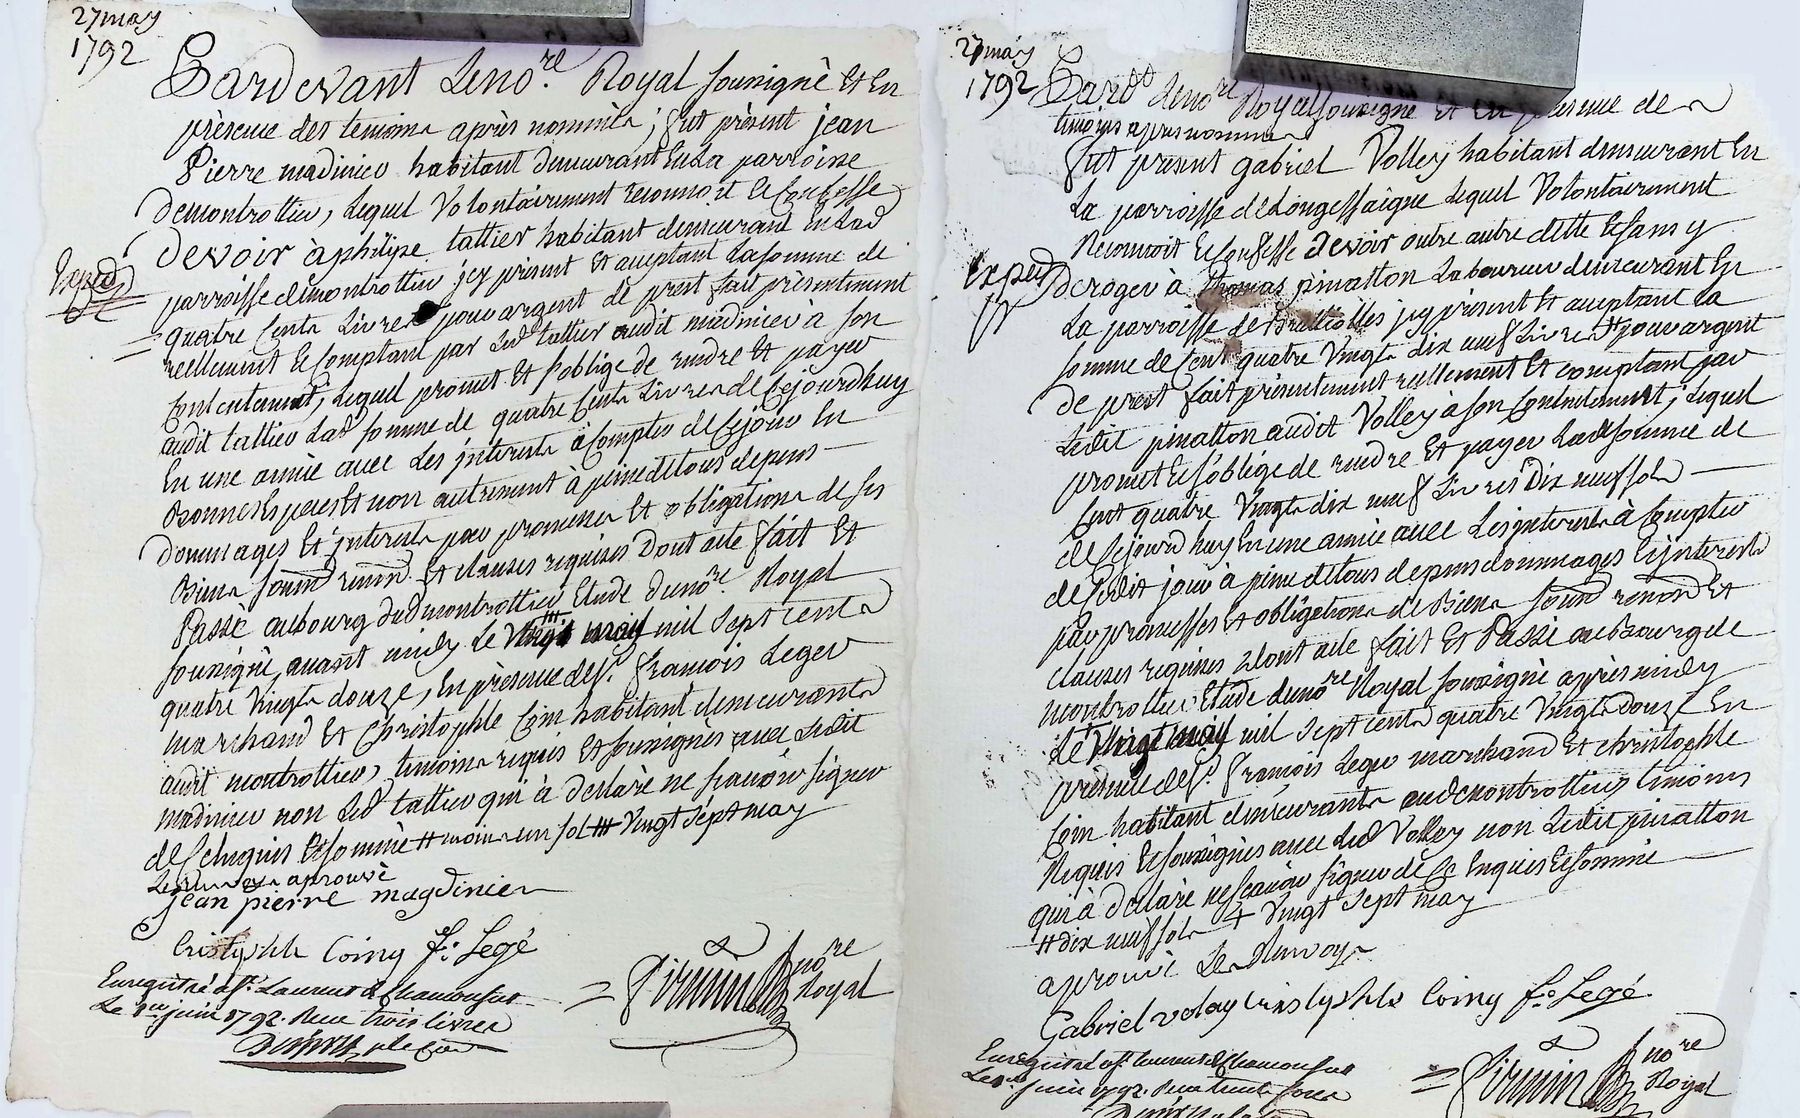 27 may
1792
Pardevant Le no.re Royal soussigné Et En
présence des temoins après nommés ; fut présent jean
Pierre madinier habitant demeurant En La parroisse
de montrottier, Lequel Volontairement reconnoit Et Confesse
Devoir à philipe tattier habitant demeurant En Lad
Exped
parroisse de montrottier jcy présent Et acceptant La somme de
quatre Cents Livres # pour argent de prest fait présentement
reellement Et Comptant par Led tattier audit madinier à son
Contentement, Lequel promet Et s'oblige de rendre Et payer
audit tattier Lad somme de quatre Cents Livres de Cejourdhuy
En une année avec Les jnterests à Compter de Cejour En
Bonnes Especes Et non autrement à peine de tous depens
dommages Et jnterests par promesses Et obligations de ses
Biens soumd renond Et clauses requises Dont acte fait Et
Passé au bourg dud montrottier Etude du no.re Royal
soussigné, avant midy Le mil sept cents
quatre Vingts douze, En présence de s.r françois Leger
marchand Et Christophle Coin habitant demeurants
audit montrottier, temoins requis Et soussignés avec Ledit
madinier non Led tattier qui à déclaré ne sçavoir signer
de Ce Enquis Et sommé # moins un sol ## Vingt sépt may
Les renvoys aprouvé
jean pierre magdinier
Cristophle Coiny f.s Legé
Enregistré à st. Laurent de chamousset
Le 1er juin 1792. Reçu trois livres
= firmin no.re
Royal
27 may
1792
Pard.t Le no.re Royal soussigné Et En présence de
temoins apres nommes
fut présent gabriel Volley habitant demeurant En
La parroisse de Longessaigne Lequel Volontairement
Reconnoit Et Confesse Devoir outre autre dette Et sans y
Exped
deroger à Thomas pinatton Laboureur demeurant En
La parroisse de Brullioles jcy présent Et acceptant La
somme de Cent quatre Vingts dix neuf Livres # pour argent
de prest fait présentement reellement Et comptant par
Ledit pinatton audit Volley à son Contentement, Lequel
promet Et s'oblige de rendre Et payer Lad somme de
Cent quatre Vingts dix neuf Livres Dix neuf sols
de Cejourdhuy En une année avec Les jnterests à Compter
de Cedit jour à peine de tous depens dommages Et jnterests
par promesses Et obligations de Biens soumd renond Et
clauses requises Dont acte fait Et Passé au Bourg de
montrottier Etude du no.re Royal soussigné après midy
Le mil Sept cents quatre Vingts douze En
présence de s.r françois Leger marchand Et christophle
Coin habitant demeurants aud montrottier temoins
Requis Et soussignés avec led Volley non Ledit pinatton
qui à déclaré ne sçavoir signer de Ce Enquis Et sommé
# dix neuf sols + Vingt sept may
aprouvé Les Renvoys
Gabriel volay Cristophle Coiny f.s Legé
Enregistré à st. Laurent de chamousset
Le juin 1792. Reçu
= firmin no.re
Royal